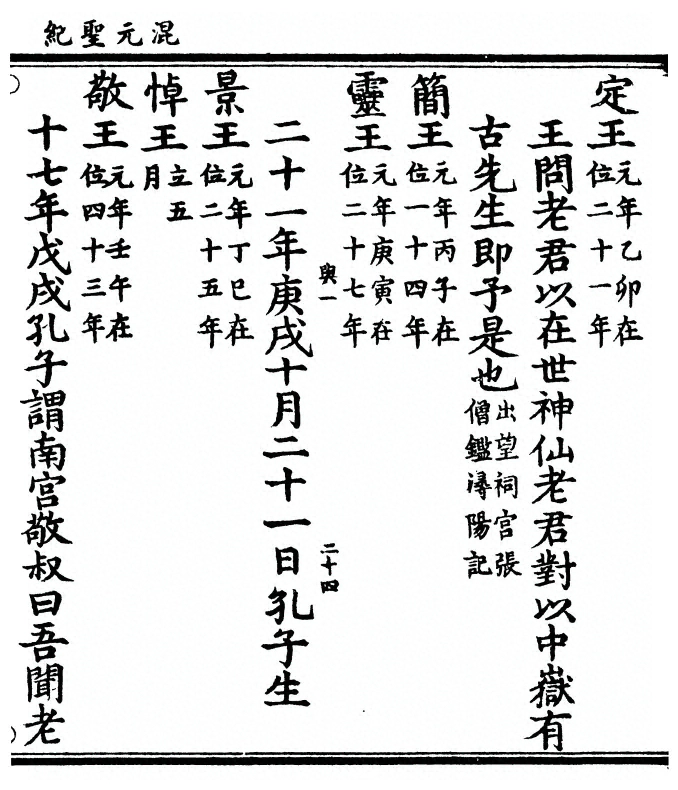 混元聖紀
定王元年乙卯在位二十一年
王問老君以在世神仙老君對以中嶽有
古先生即予是也出望祠宫張僧鑑潯陽記
簡王元年丙子在位一十四年
靈王元年庚寅在位二十七年
與一
二十四
二十一年庚戌十月二十一日孔子生
景王元年丁巳在位二十五年
悼王立五月
敬王元年壬午在位四十三年
十七年戊戌孔子謂南宫敬叔曰吾聞老